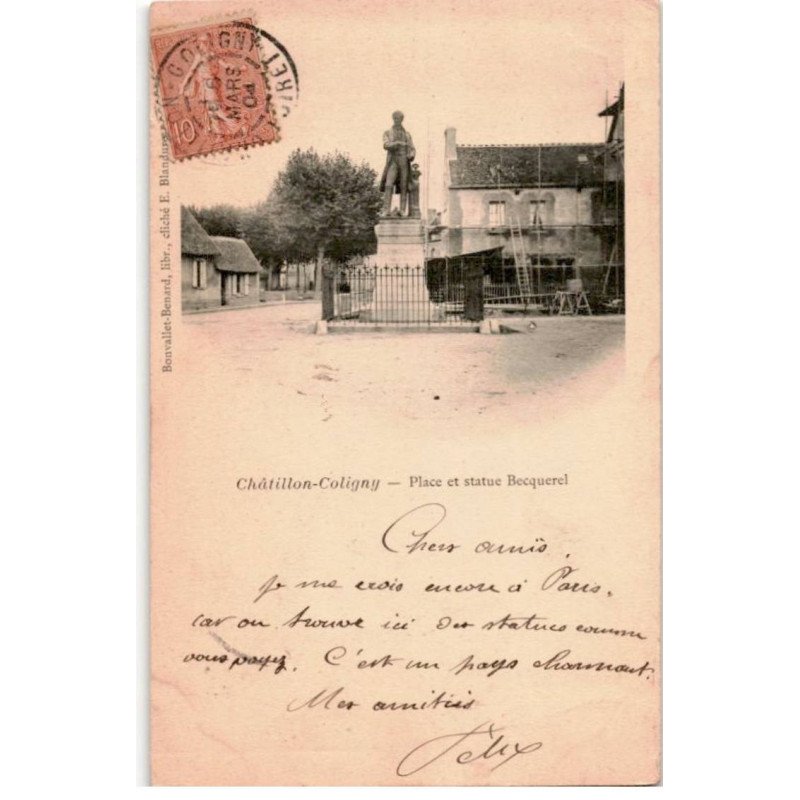 N-COLIGNY
LOIRET
MARS
04
10
Bonvallet-Benard, libr., cliché E. Blandin
Châtillon-Coligny — Place et statue Becquerel
Chers amis,
je me crois encore à Paris,
car on trouve ici des statues comme
vous voyez. C'est un pays charmant.
Mes amitiés
Félix